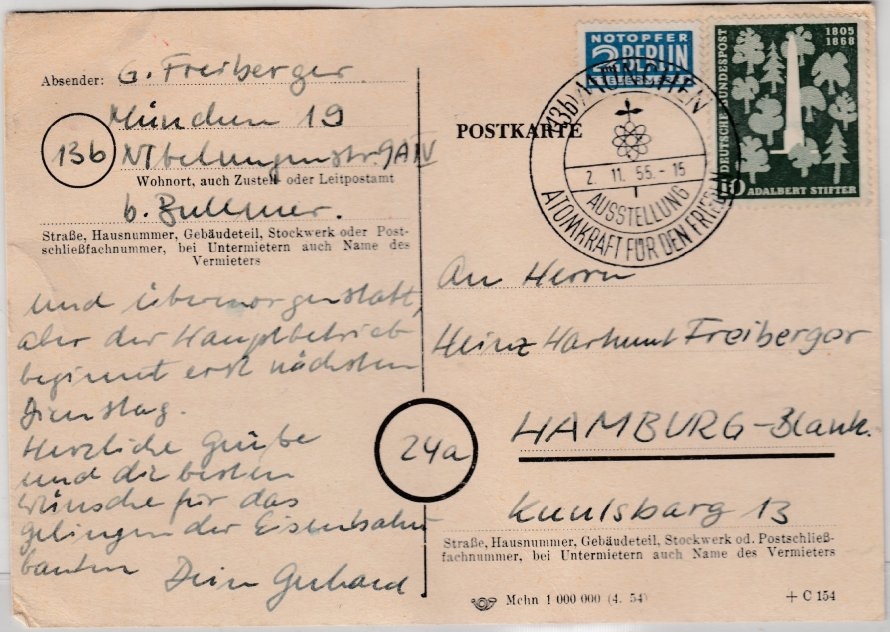 Absender: G. Freiberger
München 19
13b Nibelungenstr. 9A IV
Wohnort, auch Zustell- oder Leitpostamt
b. Bullmer.
Straße, Hausnummer, Gebäudeteil, Stockwerk oder Post-
schließfachnummer, bei Untermietern auch Name des
Vermieters
und übermorgen statt,
aber der Hauptbetrieb
beginnt erst nächsten
Dienstag.
Herzliche Grüße
und die besten
Wünsche für das
Gelingen der Eisenbahn-
bauten Dein Gerhard
NOTOPFER
2 BERLIN
STEUERMARKE
1805
1868
DEUTSCHE BUNDESPOST
10 ADALBERT STIFTER
(13b) MÜNCHEN
2. 11. 55. - 15
AUSSTELLUNG
ATOMKRAFT FÜR DEN FRIEDEN
POSTKARTE
An Herrn
Heinz Hartmut Freiberger
24a HAMBURG-Blank.
13
Straße, Hausnummer, Gebäudeteil, Stockwerk od. Postschließ-
fachnummer, bei Untermietern auch Name des Vermieters
Mchn 1 000 000 (4. 54) + C 154